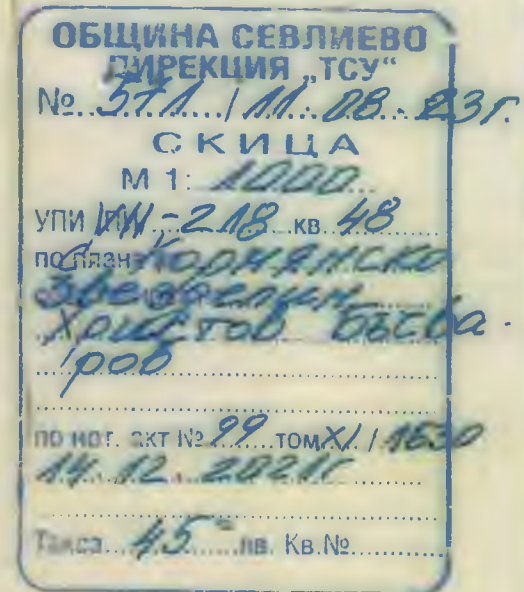 ОБЩИНА СЕВЛИЕВО
ДИРЕКЦИЯ „ТСУ“
№ 571 / 11.08.23г.
СКИЦА
М 1: 1000
УПИ -218 кв. 48
по план с. Кормянско
Христов Бъчва-
ров
по нот. акт № 99 том XI / 1630
14.12.2021г
Такса 45 лв. Кв.№